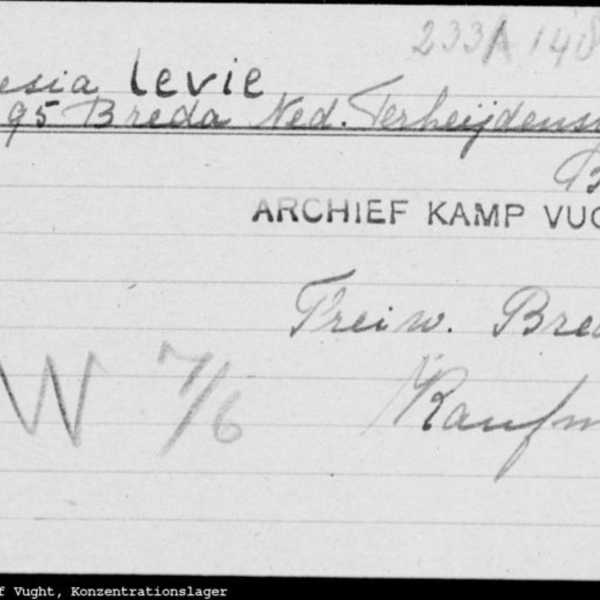 233A 148
esia Levie
95 Breda Ned. Terheijdens
B
ARCHIEF KAMP VUG
Freiw. Bred
W 7/6
Kaufm
f Vught, Konzentrationslager